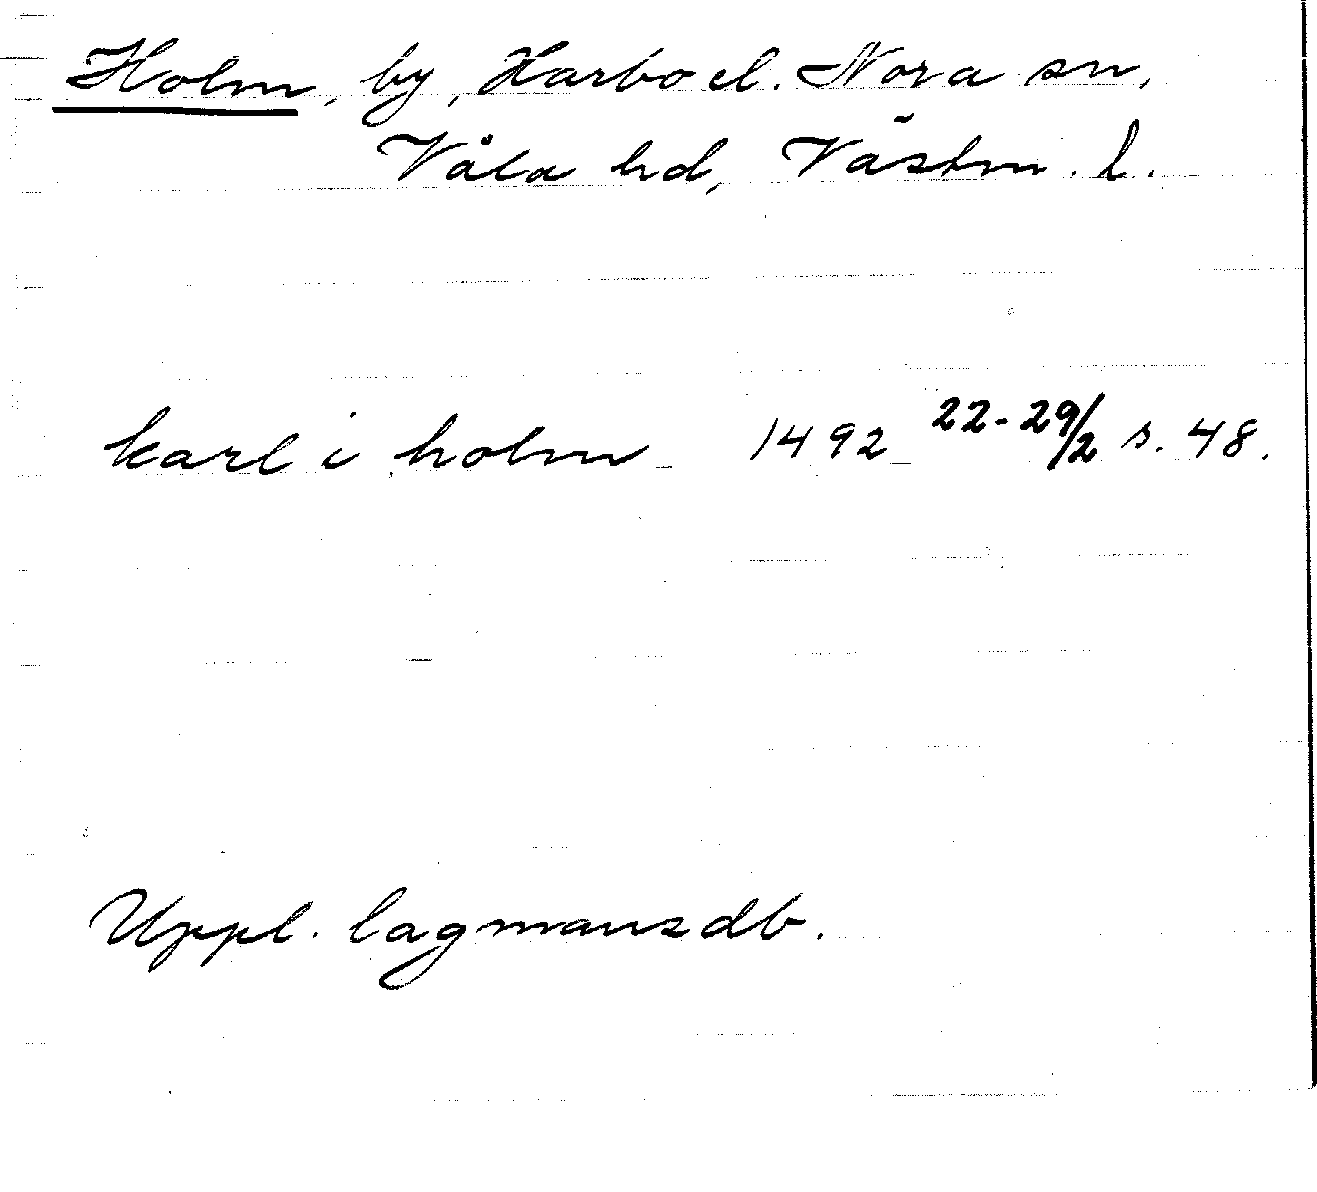 Holm, by, Harbo el. Nora sn,
Våla hd, Västm. l.
karl i holm 1492 22-29/2 s. 48.
Uppl. lagmansdb.